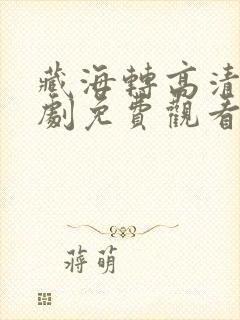 藏海轉高清
劇免費觀看
蔣萌